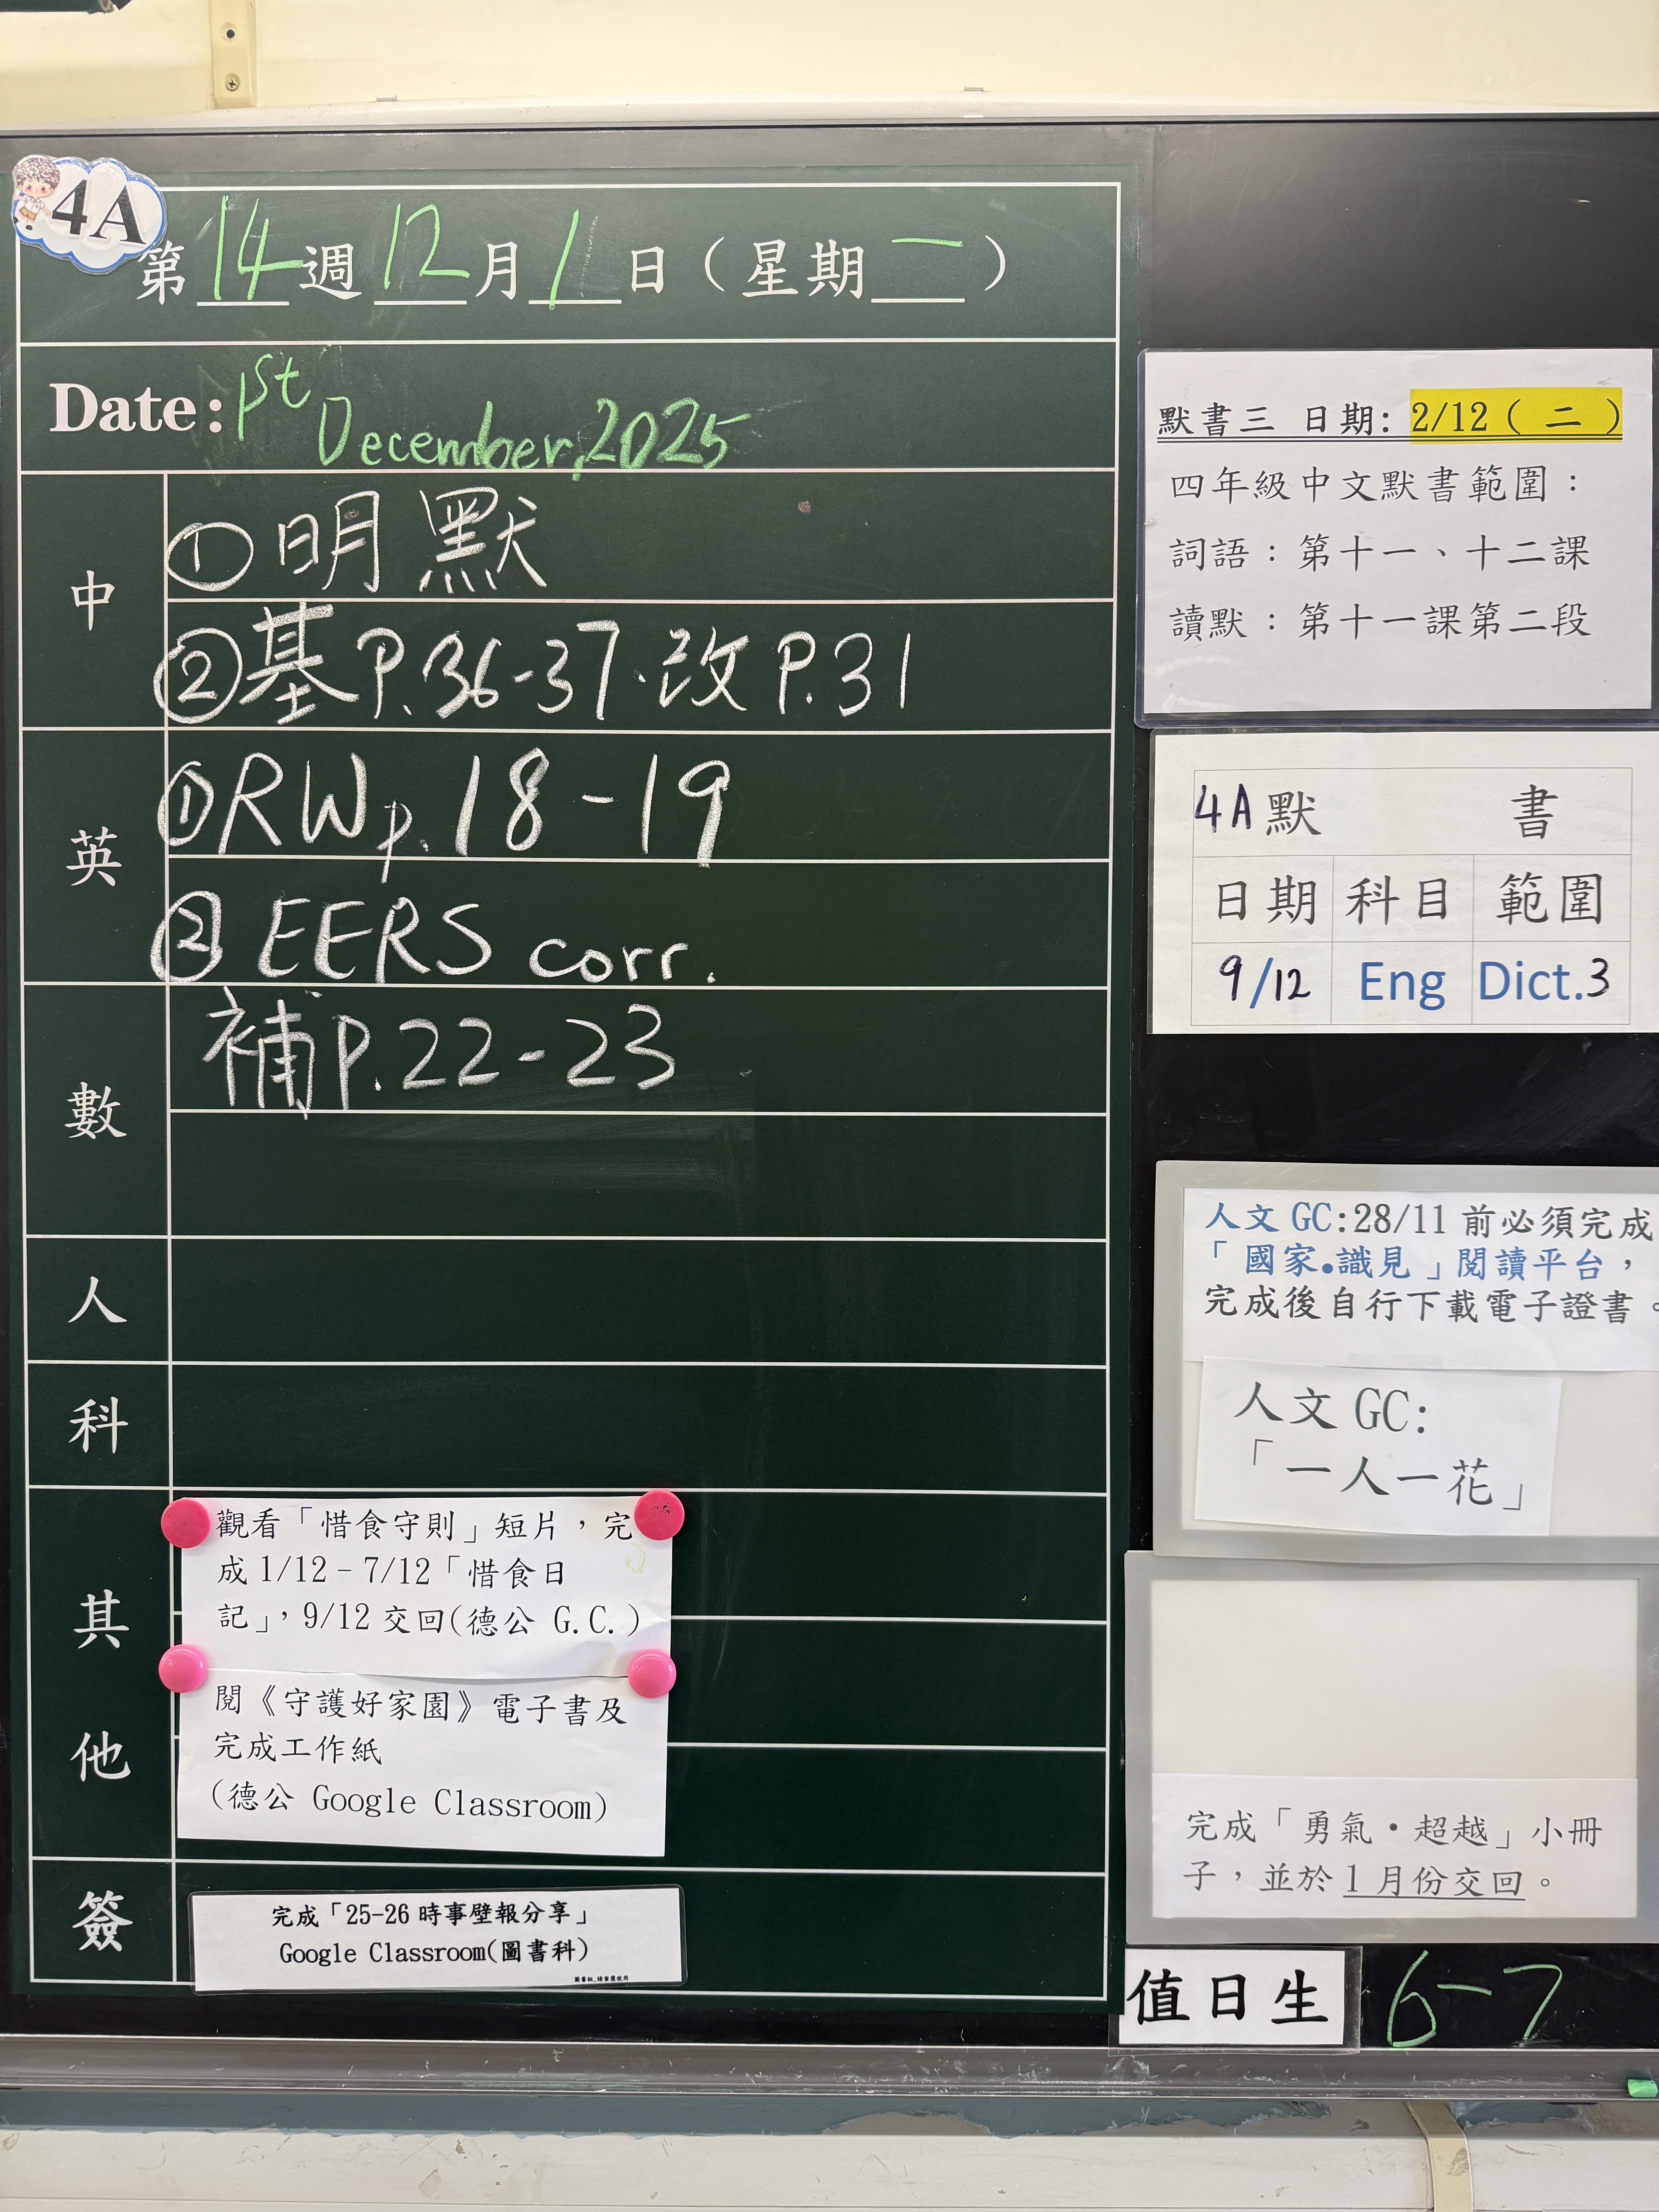 4A
第14週12月1日（星期一）
Date: 1st December, 2025
中
① 明默
② 基P.36-37·改P.31
英
① RW p.18-19
② EERS corr.
數
補P.22-23
人
科
其他
觀看「惜食守則」短片，完
成 1/12－7/12「惜食日
記」，9/12 交回(德公 G.C.)
閱《守護好家園》電子書及
完成工作紙
(德公 Google Classroom)
簽
完成「25-26 時事壁報分享」
Google Classroom(圖書科)
默書三 日期: 2/12（ 二 ）
四年級中文默書範圍：
詞語：第十一、十二課
讀默：第十一課第二段
4A默 書
日期 科目 範圍
9/12 Eng Dict.3
人文 GC:28/11 前必須完成
「國家•識見」閱讀平台，
完成後自行下載電子證書。
人文 GC:
「一人一花」
完成「勇氣・超越」小冊
子，並於 1 月份交回。
值日生 6-7